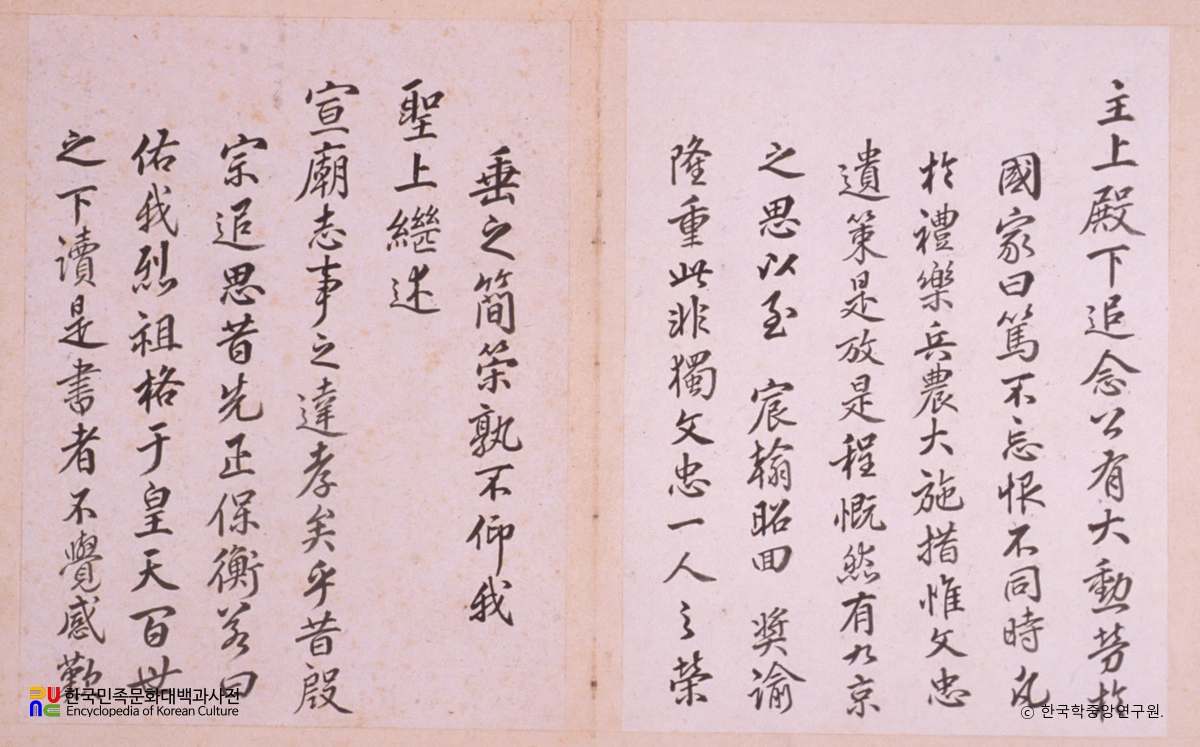 主上殿下追念公有大勳勞於
國家曰篤不忘恨不同時凡
於禮樂兵農大施措惟文忠
遺策是放是程慨然有九京
之思以至 宸翰昭回 奬諭
隆重此非獨文忠一人之榮
垂之簡策孰不仰我
聖上繼述
宣廟志事之達孝矣乎昔殷
宗追思昔先正保衡若曰
佑我烈祖格于皇天百世
之下讀是書者不覺感
한국민족문화대백과사전
Encyclopedia of Korean Culture
ⓒ 한국학중앙연구원.